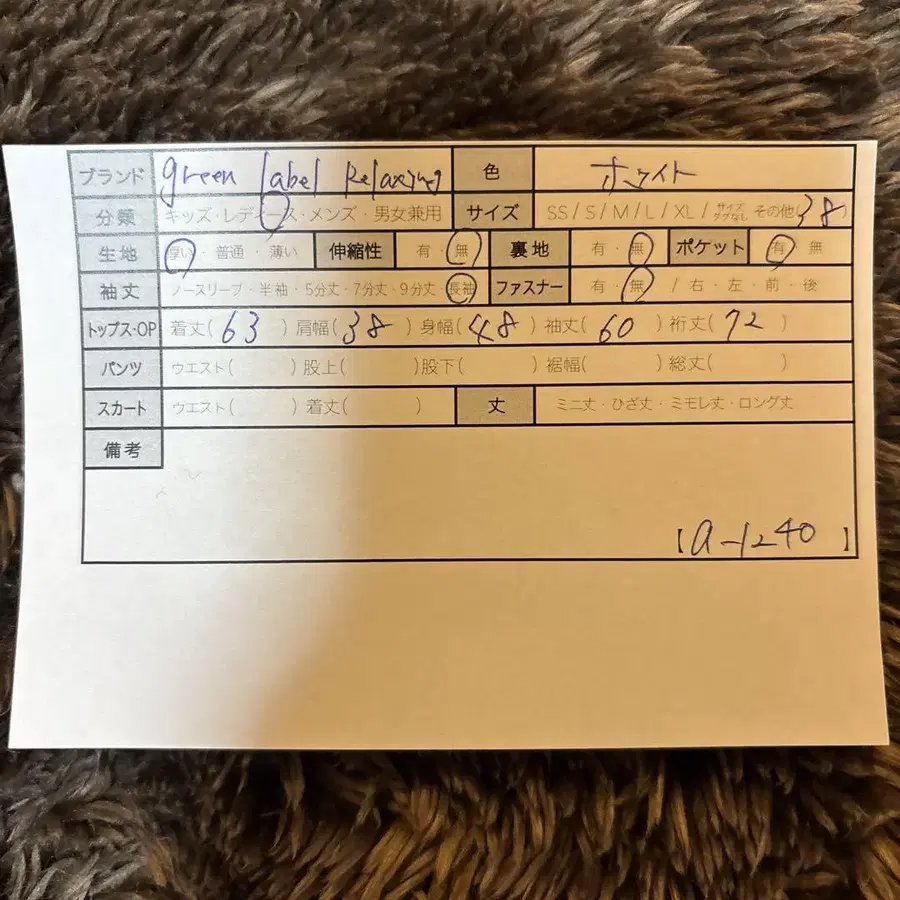 ブランド green label Relaxing 色 ホワイト
分類 キッズ・レディース・メンズ・男女兼用 サイズ SS / S / M / L / XL / サイズタグなし その他(38)
生地 厚い・普通・薄い 伸縮性 有・無 裏地 有・無 ポケット 有・無
袖丈 ノースリーブ・半袖・5分丈・7分丈・9分丈・長袖 ファスナー 有・無 / 右・左・前・後
トップス・OP 着丈(63) 肩幅(38) 身幅(48) 袖丈(60) 裄丈(72)
パンツ ウエスト( ) 股上( ) 股下( ) 裾幅( ) 総丈( )
スカート ウエスト( ) 着丈( ) 丈 ミニ丈・ひざ丈・ミモレ丈・ロング丈
備考
【a-1240】